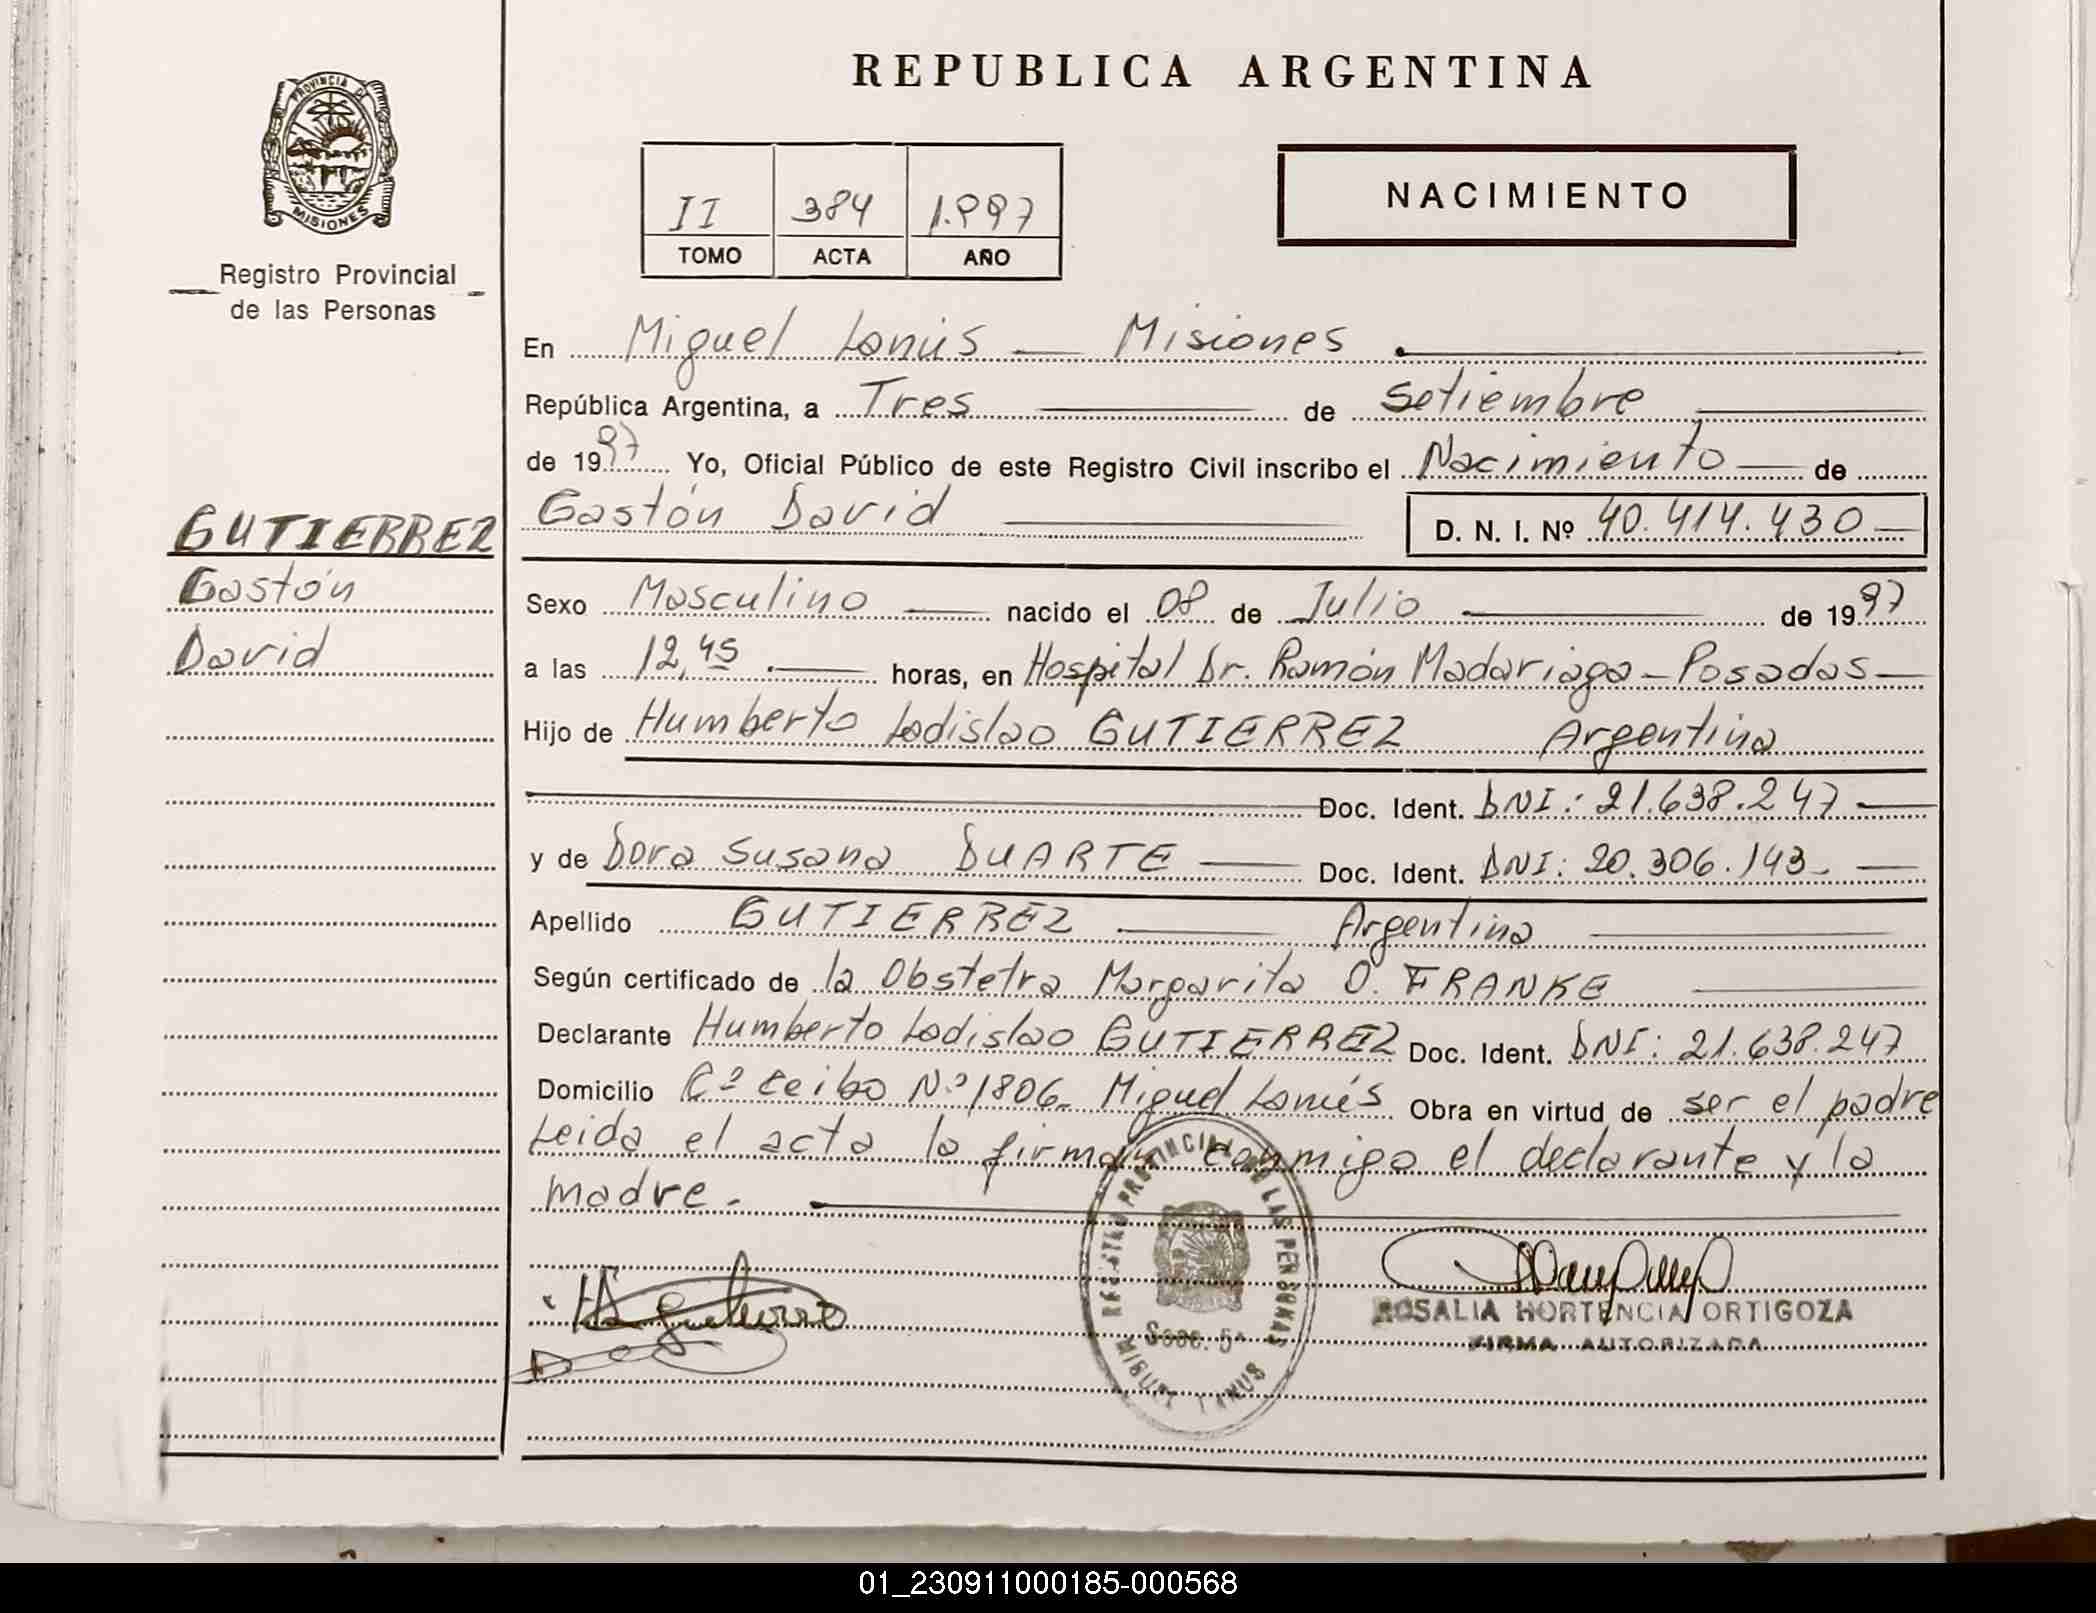 REPUBLICA ARGENTINA
PROVINCIA DE
MISIONES
Registro Provincial
de las Personas
II 384 1.997
TOMO ACTA AÑO
NACIMIENTO
En Miguel Lanús — Misiones
República Argentina, a Tres de Setiembre
de 1997 Yo, Oficial Público de este Registro Civil inscribo el Nacimiento de
Gastón David D. N. I. Nº 40.414.430
GUTIERREZ
Gastón
David
Sexo Masculino nacido el 08 de Julio de 1997
a las 12,45 horas, en Hospital Dr. Ramón Madariaga - Posadas
Hijo de Humberto Ladislao GUTIERREZ Argentina
Doc. Ident. DNI: 21.638.247
y de Dora Susana DUARTE Doc. Ident. DNI: 20.306.143
Apellido GUTIERREZ Argentina
Según certificado de la Obstetra Margarita O. FRANKE
Declarante Humberto Ladislao GUTIERREZ Doc. Ident. DNI: 21.638.247
Domicilio Cº Ceibo Nº 1806 Miguel Lanús Obra en virtud de ser el padre
Leida el acta la firman conmigo el declarante y la
madre.-
REGISTRO PROVINCIAL DE LAS PERSONAS
Secc. 5ª
MIGUEL LANUS
ROSALIA HORTENCIA ORTIGOZA
FIRMA AUTORIZADA
01_230911000185-000568